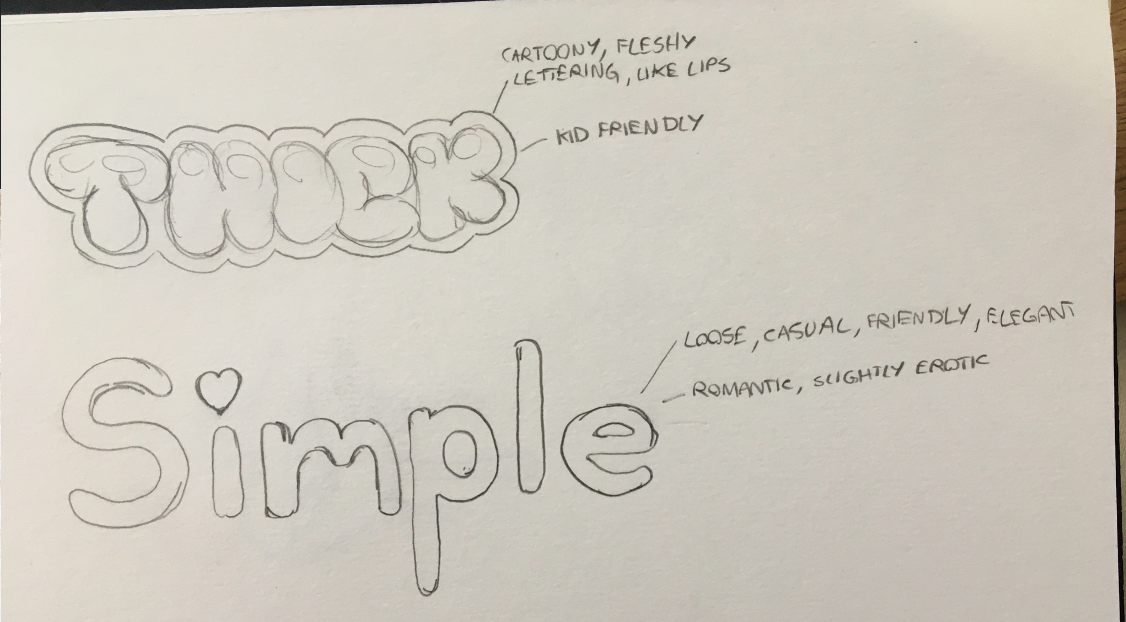 CARTOONY, FLESHY
LETTERING, LIKE LIPS
KID FRIENDLY
THICK
LOOSE, CASUAL, FRIENDLY, ELEGANT
ROMANTIC, SLIGHTLY EROTIC
Simple